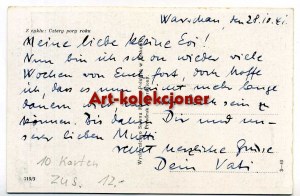 Z cyklu: Cztery pory roku
Warschau, den 28.10.41.
Meine liebe kleine Evi!
Nun bin ich schon wieder viele
Wochen von Euch fort, doch hoffe
ich, das es nun nicht mehr lange
dauern wird
können. Bis dahin Dir und un-
serer lieben Mutti
recht herzliche Grüsse
Dein Vati
Art-kolekcjoner
10 Karten
zus. 12,-